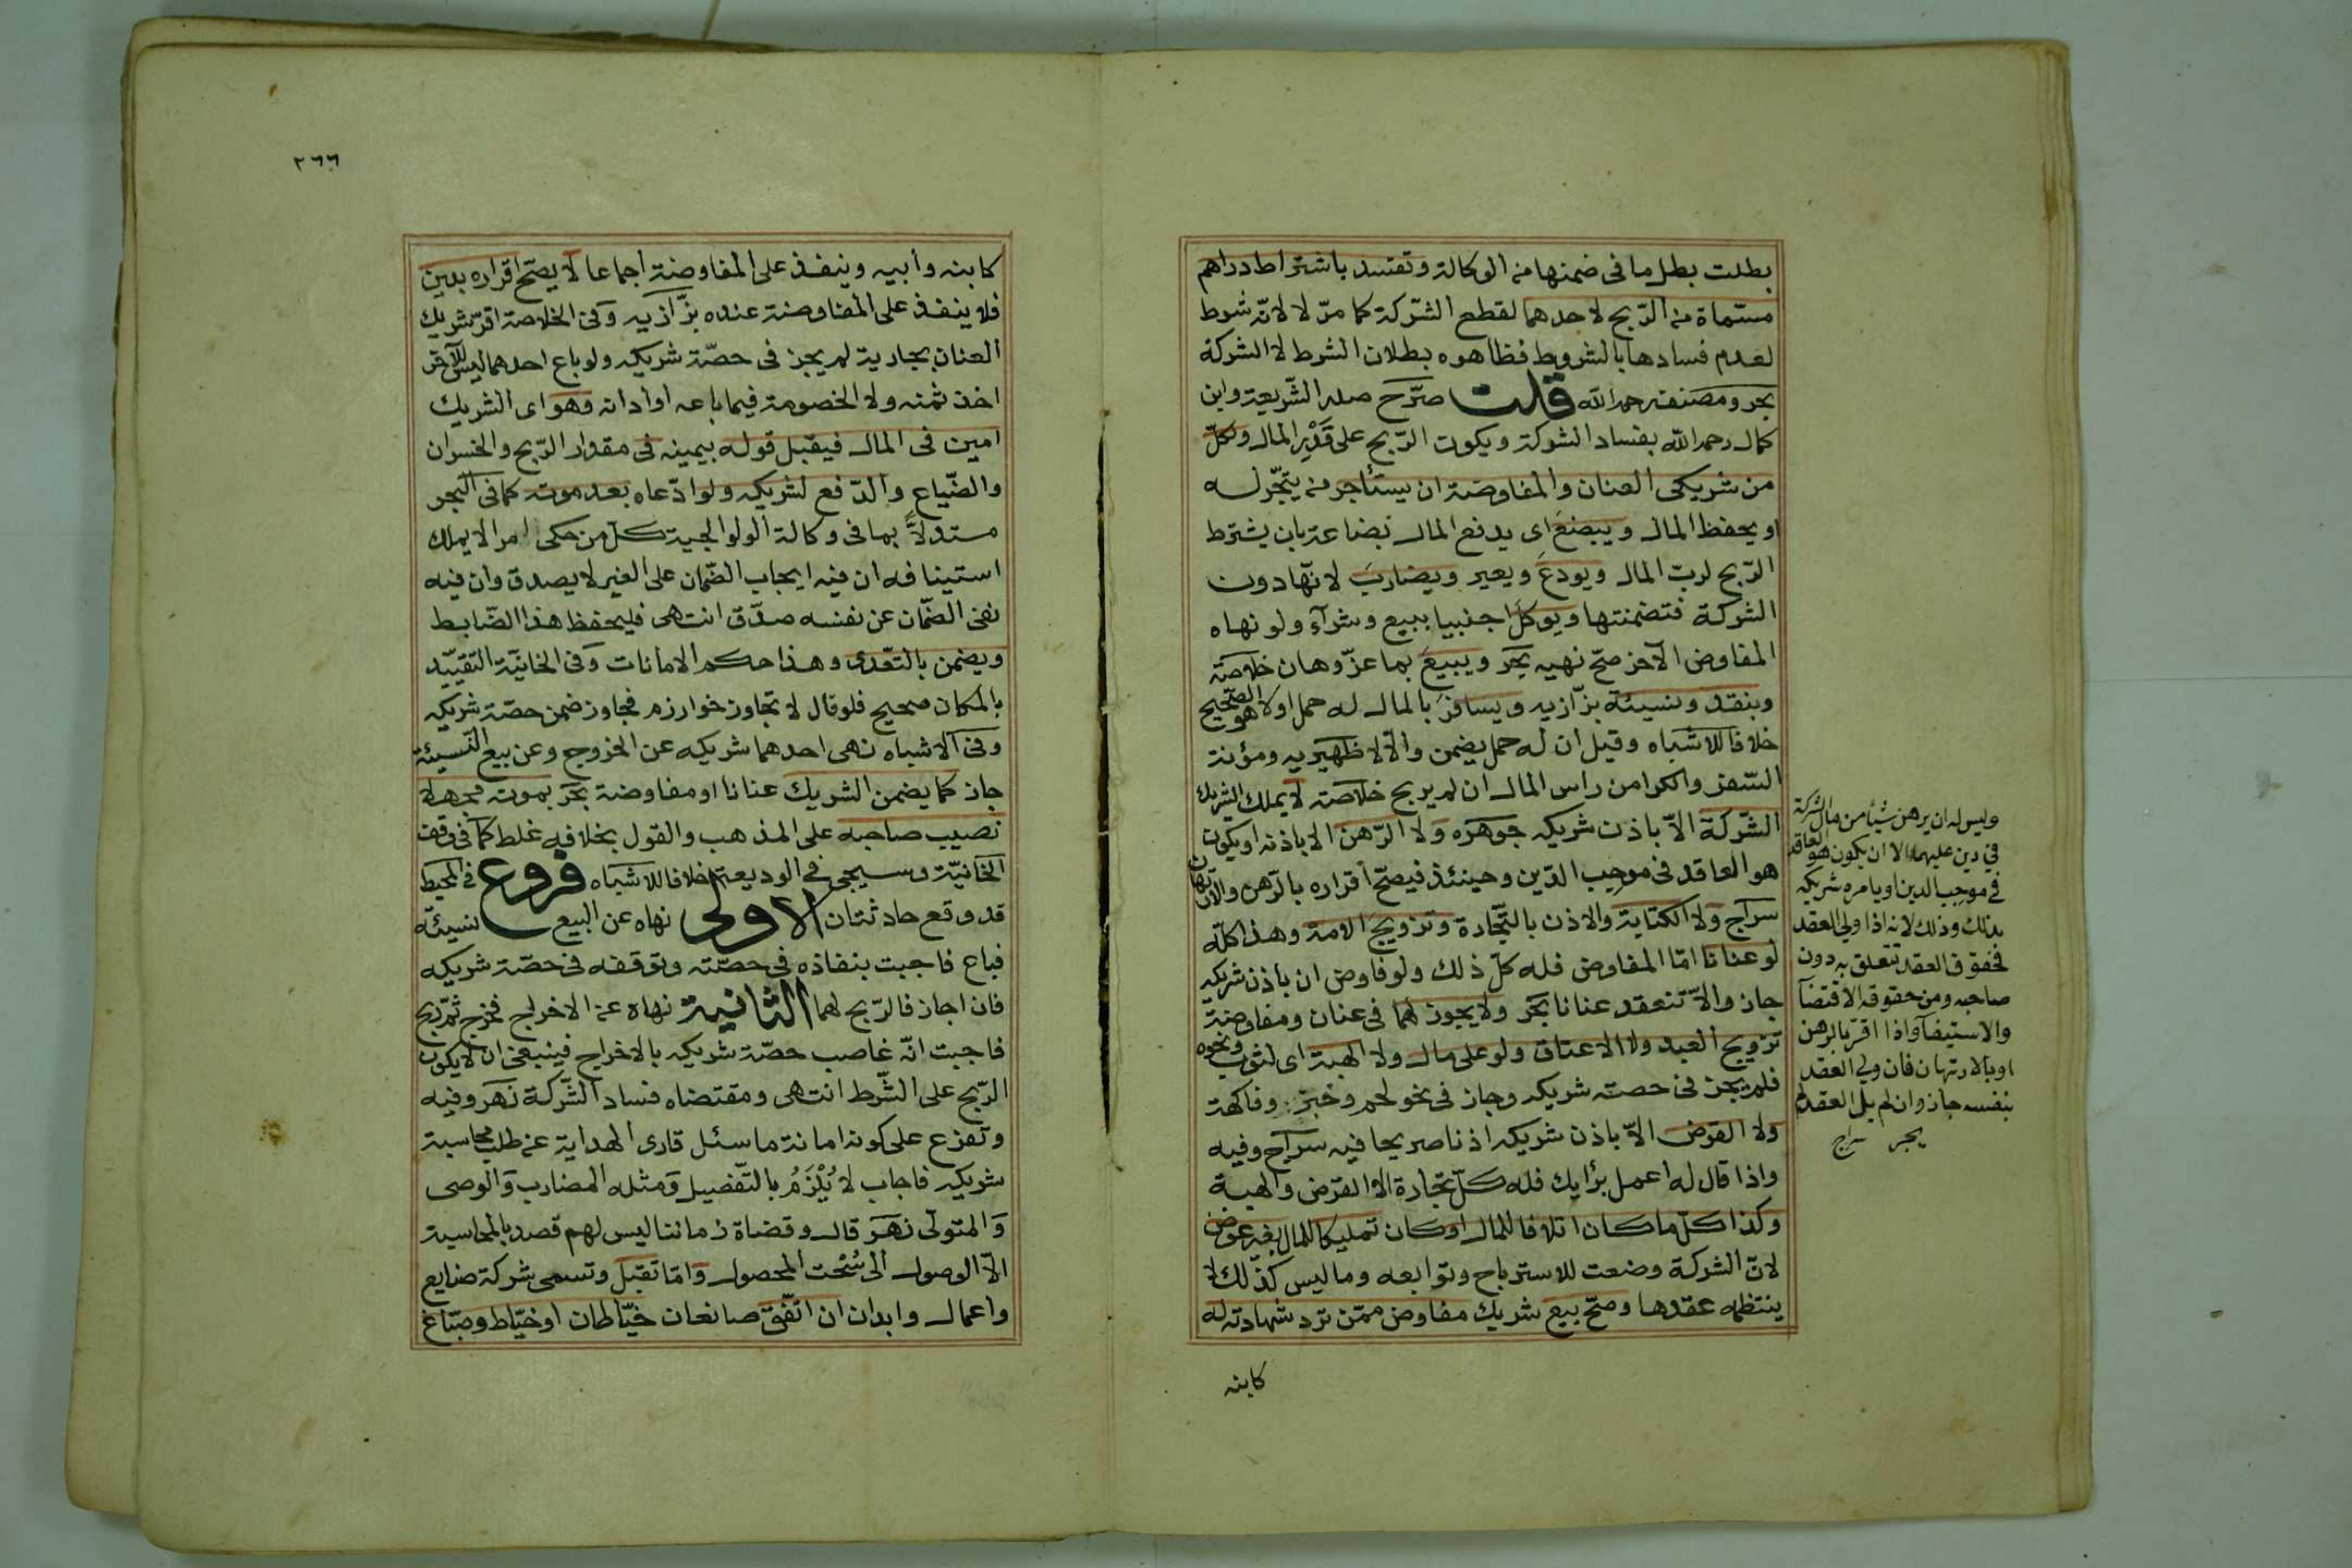 بطلت بطل ما فى ضمنها من الوكالة وتفسد باشتراط دراهم
مسمّاة من الرّبح لاحدهما لقطع الشّركة كما مرّ لا لانّه شرط
لعدم فسادها بالشروط فظاهره بطلان الشرط لا الشركة
بحر ومصنف رحمه الله قلت صرّح صدر الشّريعة وابن
كمال رحمه الله بفساد الشركة ويكون الرّبح على قَدْرِ المال ولكلّ
من شريكى العنان والمفاوضة ان يستأجر من يتّجر له
او يحفظ المال ويبضعَ اى يدفع المال بضاعة بان يشترط
الرّبح لربّ المال ويودعَ ويعير ويضاربَ لانّها دون
الشركة فتضمنتها ويوكلَ اجنبيا ببيع وشرآء ولو نهاه
المفاوض الآخر صحّ نهيه بحَر ويبيعَ بما عزّ وهان خلاصة
وبنقد ونسيئة بزّازيه ويسافرَ بالمال له حمل اولا هو الصّحيح
خلافا للاشباه وقيل ان له حمل يضمن والّا لا ظهيريه ومؤنة
السّفر والكرا من راس المال ان لم يربح خلاصة لا يملك الشريك
الشّركة الّا باذن شريكه جوهره ولا الرّهن الا باذنه او يكون
هو العاقد فى موجب الدّين وحينئذ فيصحّ اقراره بالرّهن والارتهان
سراج ولا الكتابة والاذن بالتّجارة وتزويج الامة وهذا كلّه
لو عنانا امّا المفاوض فله كلّ ذلك ولو فاوض ان باذن شريكه
جاز والّا تنعقد عنانا بحَر ولا يجوز لهما فى عنان ومفاوضة
تزويج العبد ولا الاعتاق ولو على مال ولا الهبة اى لثوب ونحوه
فلم يجز فى حصة شريكه وجاز فى نحو لحم وخبز وفاكهة
ولا القرض الّا باذن شريكه اذنا صريحا فيه سراج وفيه
واذا قال له اعمل برأيك فله كلّ تجارة الا القرض والهبة
وكذا كلّ ما كان اتلافا للمال او كان تمليكا للمال بغير عوض
لانّ الشركة وضعت للاسترباح وتوابعه وما ليس كذلك لا
ينتظمه عقدها وصحّ بيع شريك مفاوض ممّن ترد شهادته له
كابنه
وليس له ان يرهن شيأ من مال الشركة
في دين عليهما الا ان يكون هو العاقد
في موجب الدين او يامره شريكه
بذلك وذلك لانه اذا ولي العقد
فحقوق العقد تتعلق به دون
صاحبه ومن حقوقه الاقتضآ
والاستيفآ واذا اقر بالرهن
او بالارتهان فان ولي العقد
بنفسه جاز وان لم يل العقد لم
يجز سراج
٢٦٦
كابنه وابيه وينفذ على المفاوضة اجماعا لا يصحّ اقراره بدين
فلا ينفذ على المفاوضة عنده بزّازيه وفى الخلاصة اقرّ شريك
العنان بجارية لم يجز فى حصّة شريكه ولو باع احدهما ليس للآخر
اخذ ثمنه ولا الخصومة فيما باعه او ادانه وهو اى الشريك
امين فى المال فيقبل قوله بيمينه فى مقدار الرّبح والخسران
والضّياع والدّفع لشريكه ولو ادّعاه بعد موته كما فى البحر
مستدلاًّ بما فى وكالة الولوالجية كلّ من حكى امرا لا يملك
استينافه ان فيه ايجاب الضّمان على الغير لا يصدق وان فيه
نفى الضّمان عن نفسه صدّق انتهى فليحفظ هذا الضّابط
ويضمن بالتّعدى وهذا حكم الامانات وفى الخانيّة التقييد
بالمكان صحيح فلو قال لا تجاوز خوارزم فجاوز ضمن حصّة شريكه
وفى الاشباه نهى احدهما شريكه عن الخروج وعن بيع النّسيئة
جاز كما يضمن الشريك عنانا او مفاوضة بحر بموته مجهلا
نصيب صاحبه على المذهب والقول بخلافه غلط كما فى وقف
الخانيّة وسيجئ فى الوديعة خلافا للاشباه فروع فى المحيط
قد وقع حادثتان الاولى نهاه عن البيع نسيئة
فباع فاجبت بنفاذه فى حصّته وتوقفه فى حصّة شريكه
فان اجاز فالرّبح لهما الثانية نهاه عن الاخراج فخرج ثمّ ربح
فاجبت انّه غاصب حصّة شريكه بالاخراج فينبغى ان لا يكون
الرّبح على الشّرط انتهى ومقتضاه فساد الشّركة نهَر وفيه
وتفرّع على كونه امانة ما سئل قارى الهداية عن طلب محاسبة
شريكه فاجاب لا يُلْزَمُ بالتّفصيل وَمثله المضارب وَالوصى
وَالمتولّى نهَر قال وقضاة زماننا ليس لهم قصد بالمحاسبة
الّا الوصول الى سُحْت المحصول وَامّا تقبّل وتسمى شركة صنايع
واعمال وابدان ان اتّفق صانعان خيّاطان او خيّاط وصبّاغ